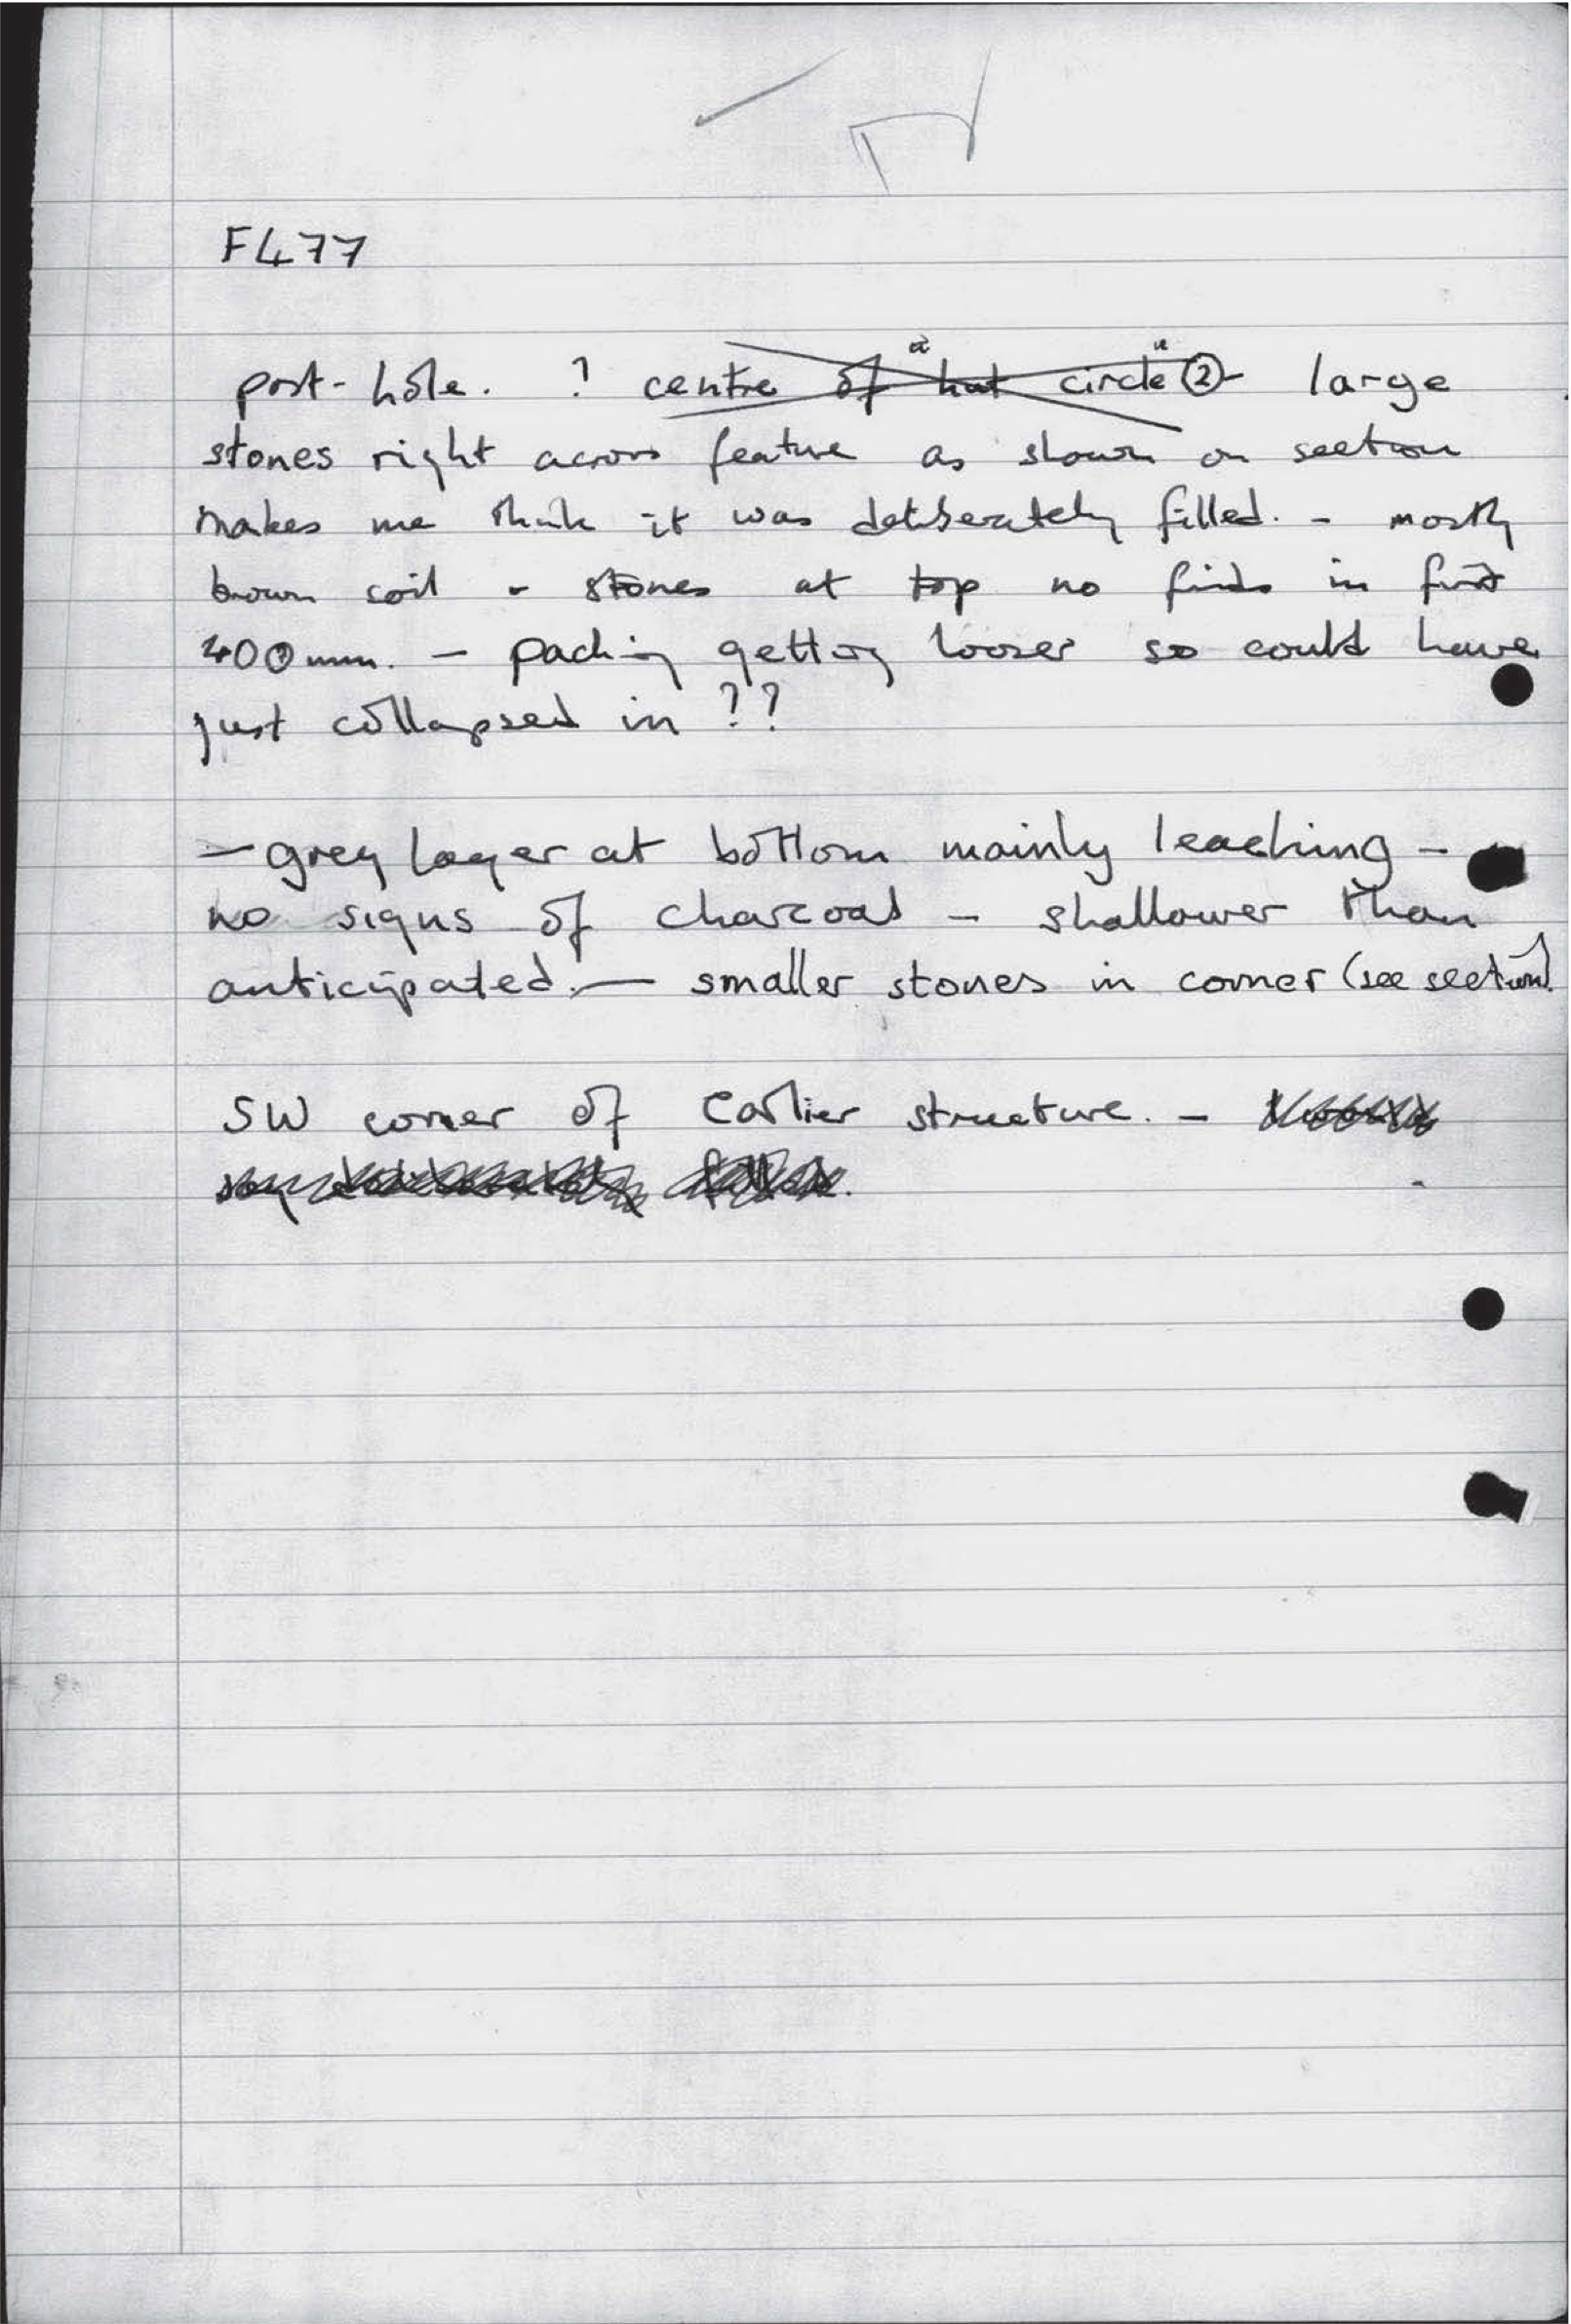 F477
post-hole. ? centre of "hut circle" ② large
stones right across feature as shown on section
makes me think it was deliberately filled. - mostly
brown soil - stones at top no finds in first
400mm. - packing getting looser so could have
just collapsed in ??
- grey layer at bottom mainly leaching -
no signs of charcoal - shallower than
anticipated. - smaller stones in corner (see section)
SW corner of Earlier structure. -